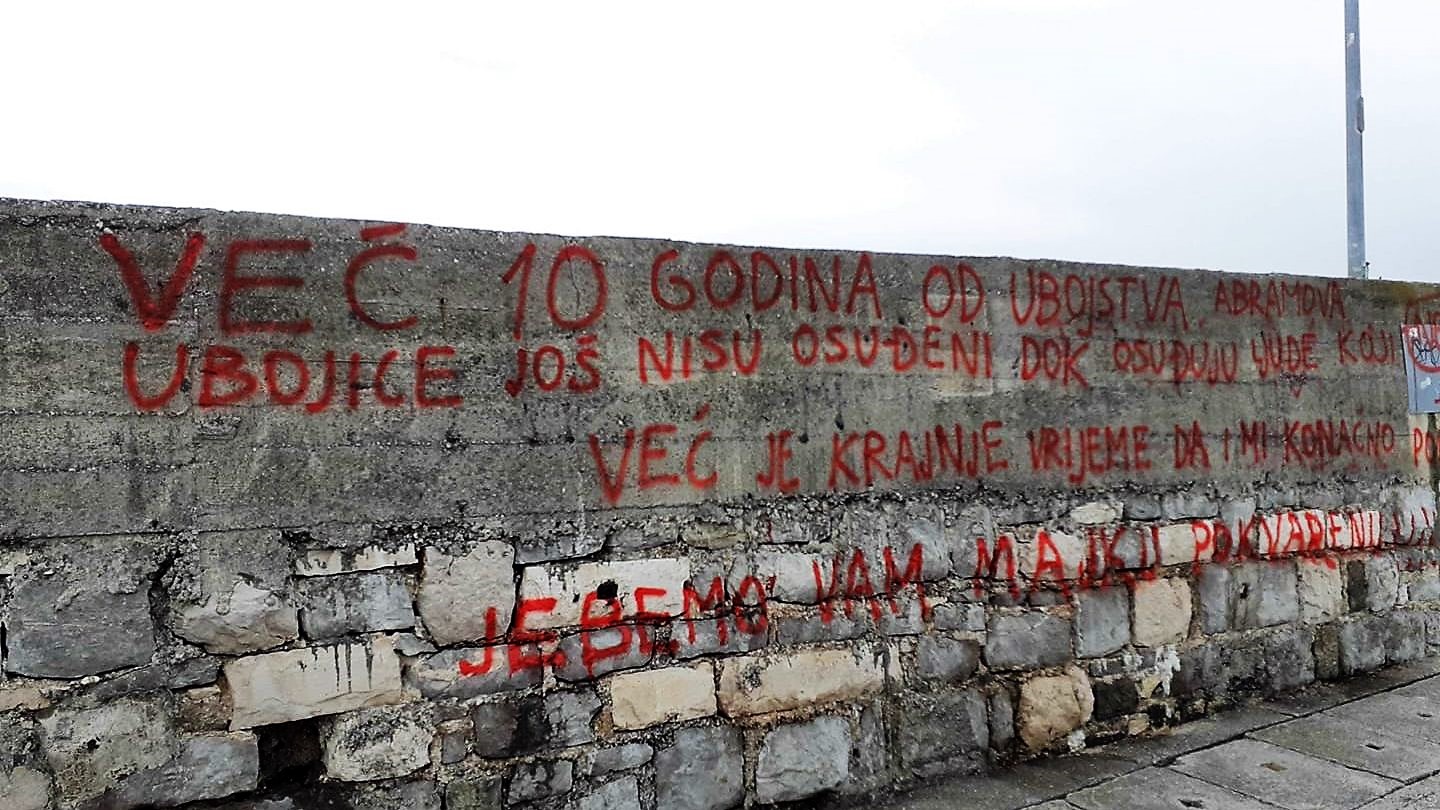 VEČ 10 GODINA OD UBOJSTVA ABRAMOVA
UBOJICE JOŠ NISU OSUĐENI DOK OSUĐUJU LJUDE KOJI
VEĆ JE KRAJNJE VRIJEME DA I MI KONAČNO
JEBEMO VAM MAJKU POKVARENU